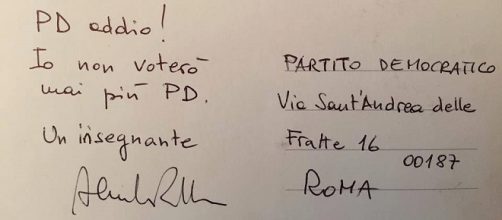 PD addio!
Io non voterò
mai più PD.
Un insegnante
PARTITO DEMOCRATICO
Via Sant'Andrea delle
Fratte 16
00187
ROMA